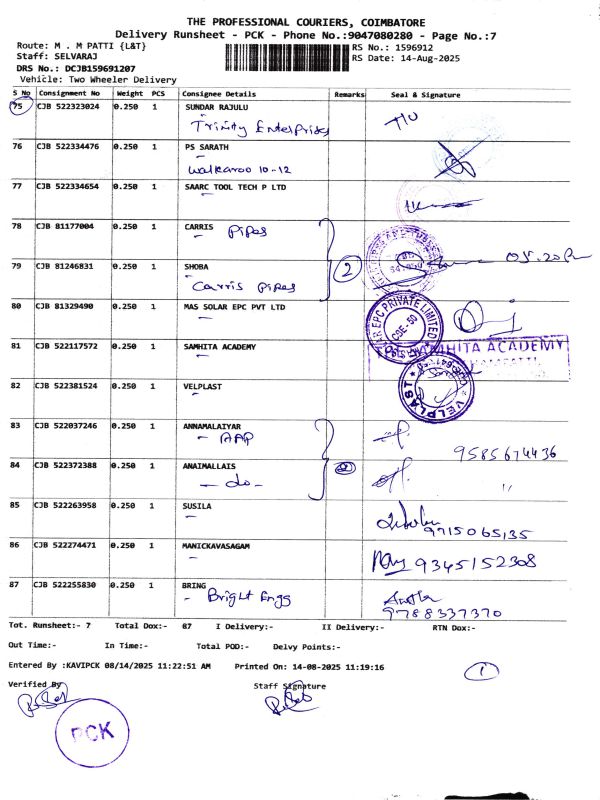 THE PROFESSIONAL COURIERS, COIMBATORE
Delivery Runsheet - PCK - Phone No.:9047080280 - Page No.:7
Route: M . M PATTI {L&T}
RS No.: 1596912
Staff: SELVARAJ
RS Date: 14-Aug-2025
DRS No.: DCJB159691207
Vehicle: Two Wheeler Delivery
S No Consignment No Weight PCS Consignee Details Remarks Seal & Signature
75 CJB 522323024 0.250 1 SUNDAR RAJULU
Trinity Enterprises
76 CJB 522334476 0.250 1 PS SARATH
Walkaroo 10-12
77 CJB 522334654 0.250 1 SAARC TOOL TECH P LTD
78 CJB 81177004 0.250 1 CARRIS Pipes
2
79 CJB 81246831 0.250 1 SHOBA
Carris Pipes
80 CJB 81329490 0.250 1 MAS SOLAR EPC PVT LTD
EPC PRIVATE LIMITED
CBE-50
81 CJB 522117572 0.250 1 SAMHITA ACADEMY
SAMHITA ACADEMY
82 CJB 522381524 0.250 1 VELPLAST
VELPLAST
83 CJB 522037246 0.250 1 ANNAMALAIYAR
- AAP
9585674436
84 CJB 522372388 0.250 1 ANAIMALLAIS
- do -
85 CJB 522263958 0.250 1 SUSILA
9715065135
86 CJB 522274471 0.250 1 MANICKAVASAGAM
9345152308
87 CJB 522255830 0.250 1 BRING
- Bright Engs
9788337370
Tot. Runsheet:- 7 Total Dox:- 87 I Delivery:- II Delivery:- RTN Dox:-
Out Time:- In Time:- Total POD:- Delvy Points:-
Entered By :KAVIPCK 08/14/2025 11:22:51 AM Printed On: 14-08-2025 11:19:16
1
Verified By Staff Signature
PCK